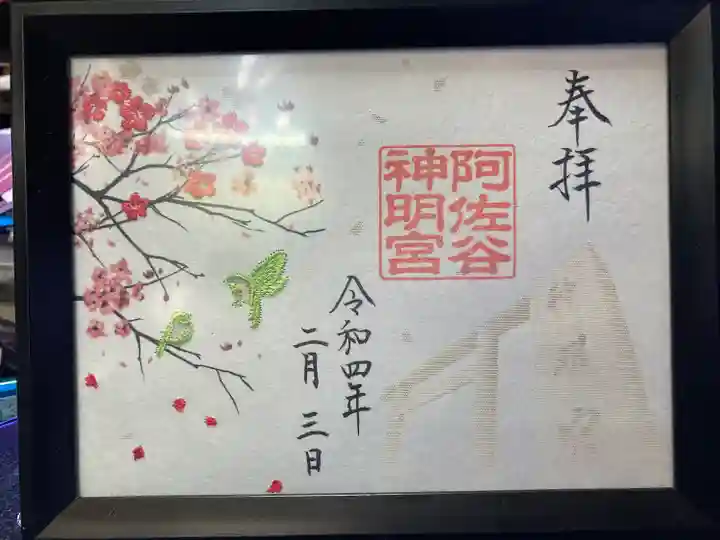 奉拝
阿佐谷
神明宮
令和四年
二月三日